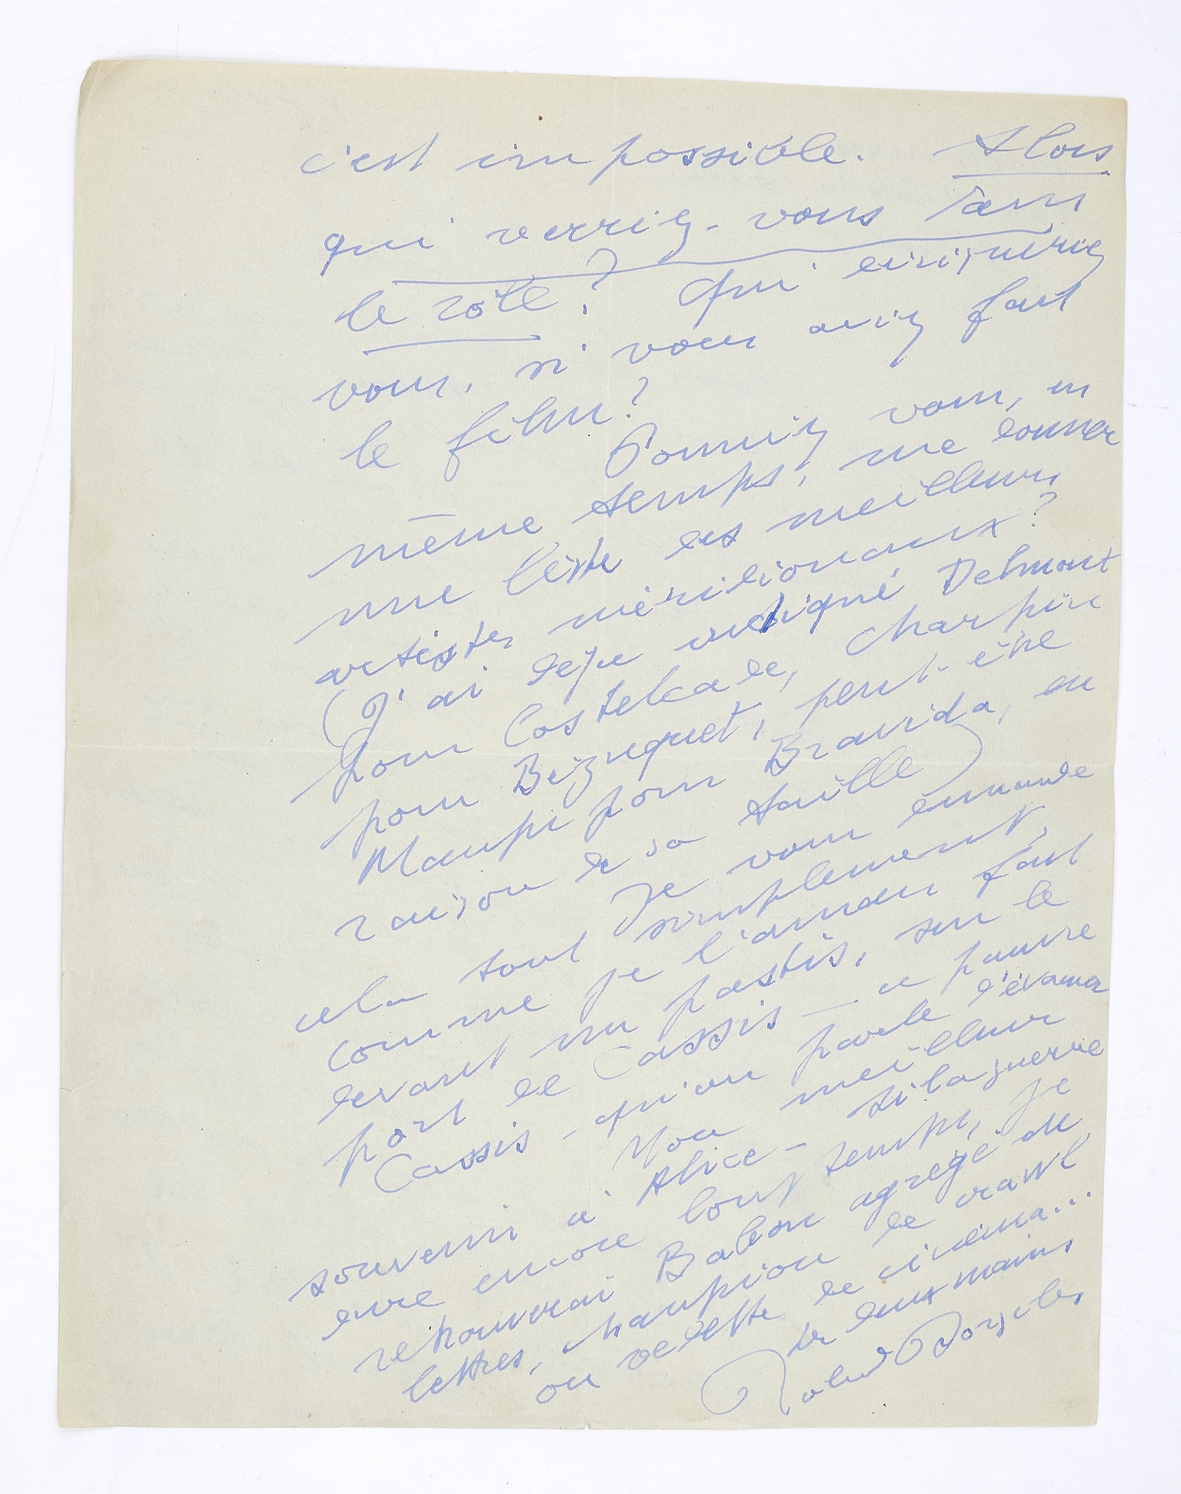 c'est impossible. Alors
qui verriez-vous dans
le rôle? Qui désigneriez
vous, si vous aviez fait
le film?
Pourriez vous, en
même temps, me donner
une liste des meilleurs
artistes méridionaux?
(J'ai déjà indiqué Delmont
pour Costelcade, Charpin
pour Bézuquet, peut-être
Maupi pour Bravida, en
raison de sa taille)
Je vous demande
cela tout simplement,
comme je l'aurais fait
devant un pastis, sur le
port de Cassis — ce pauvre
Cassis - qu'on parle d'évacuer
Mon meilleur
souvenir à Alice - Si la guerre
dure encore longtemps, je
retrouverai agrégé de
lettres, champion de crawl
ou vedette de cinéma...
De deux mains
Robert